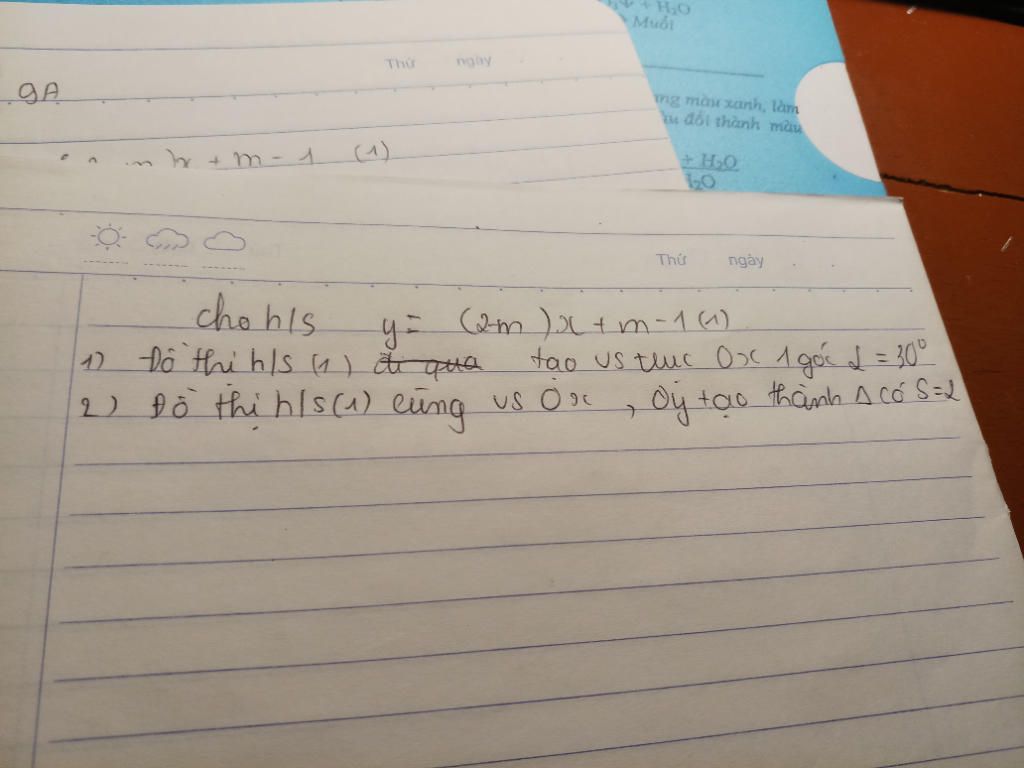 ↓ + H₂O
Muối
Thứ ngày
9A
màu xanh, làm
đổi thành màu
x + m - 1 (1)
+ H₂O
Thứ ngày
Cho h/s y = (2-m)x + m - 1 (1)
1) Đồ thị h/s (1) đi qua tạo vs trục Ox 1 góc α = 30°
2) Đồ thị h/s (1) cùng vs Ox, Oy tạo thành Δ có S = 2